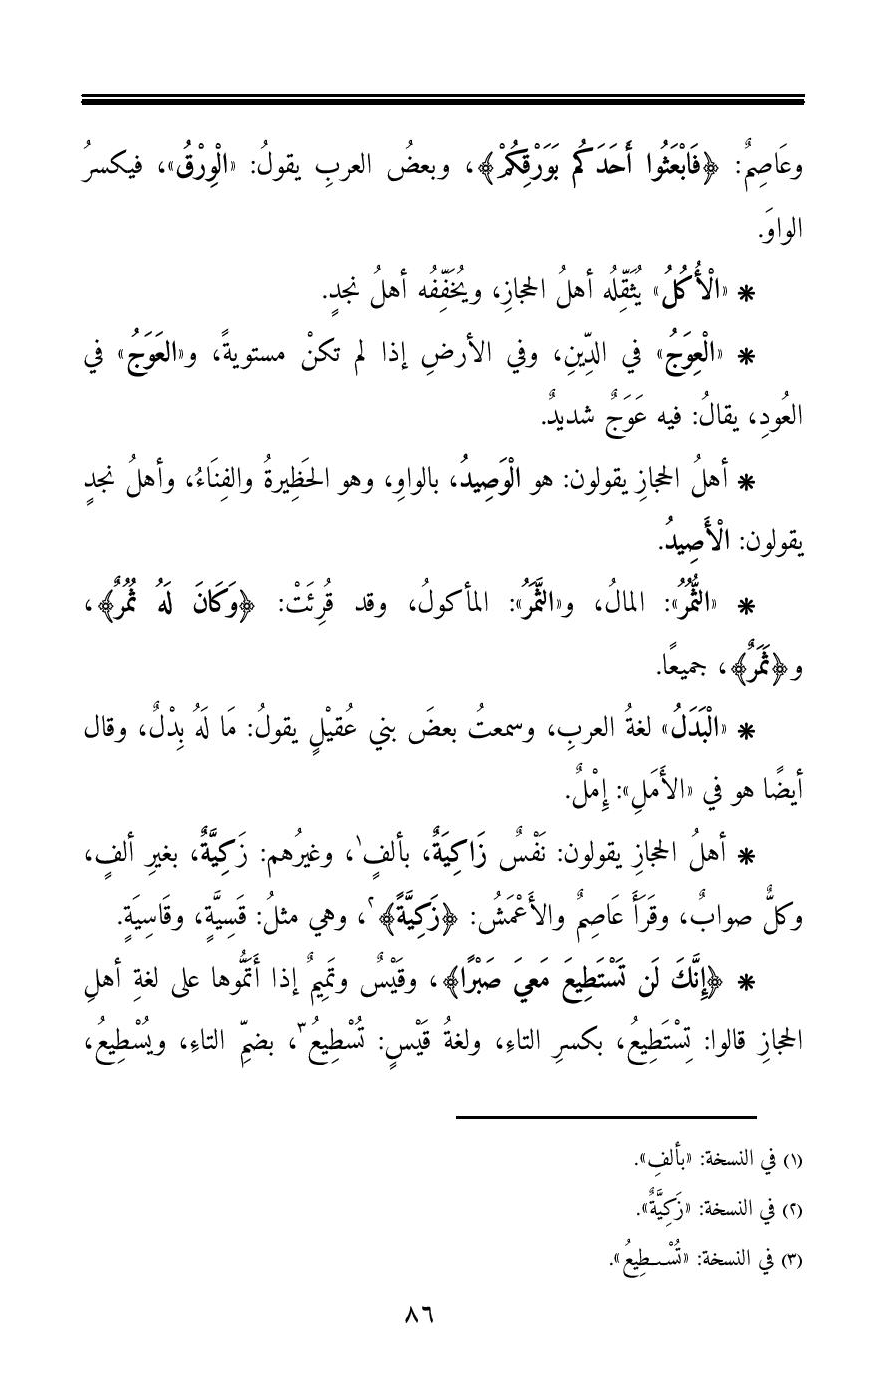 وعَاصِمٌ: ﴿فَابْعَثُوا أَحَدَكُم بِوَرْقِكُمْ﴾، وبعضُ العربِ يقولُ: «الْوِرْقُ»، فيكسرُ
الواوَ.
* «الْأُكُلُ» يُثَقِّلُه أهلُ الحجازِ، ويُخَفِّفُه أهلُ نجدٍ.
* «الْعِوَجُ» في الدِّينِ، وفي الأرضِ إذا لم تكنْ مستويةً، و«العَوَجُ» في
العُودِ، يقالُ: فيه عَوَجٌ شديدٌ.
* أهلُ الحجازِ يقولون: هو الْوَصِيدُ، بالواوِ، وهو الحَظِيرةُ والفِنَاءُ، وأهلُ نجدٍ
يقولون: الْأَصِيدُ.
* «الثُّمُرُ»: المالُ، و«الثَّمَرُ»: المأكولُ، وقد قُرِئَتْ: ﴿وَكَانَ لَهُ ثُمُرٌ﴾،
و﴿ثَمَرٌ﴾، جميعًا.
* «الْبَدَلُ» لغةُ العربِ، وسمعتُ بعضَ بني عُقيْلٍ يقولُ: مَا لَهُ بِدْلٌ، وقال
أيضًا هو في «الأَمَلِ»: إِمْلٌ.
* أهلُ الحجازِ يقولون: نَفْسٌ زَاكِيَةٌ، بألفٍ١، وغيرُهم: زَكِيَّةٌ، بغيرِ ألفٍ،
وكلٌّ صوابٌ، وقَرَأَ عَاصِمٌ والأَعْمَشُ: ﴿زَكِيَّةً﴾٢، وهي مثلُ: قَسِيَّةٍ، وقَاسِيَةٍ.
* ﴿إِنَّكَ لَن تَسْتَطِيعَ مَعيَ صَبْرًا﴾، وقَيْسٌ وتَمِيمٌ إذا أَتَمُّوها على لغةِ أهلِ
الحجازِ قالوا: تِسْتَطِيعُ، بكسرِ التاءِ، ولغةُ قَيْسٍ: تُسْطِيعُ٣، بضمِّ التاءِ، ويُسْطِيعُ،
(١) في النسخة: «بألفِ».
(٢) في النسخة: «زَكِيَّةٌ».
(٣) في النسخة: «تُسْـطِيعُ».
٨٦